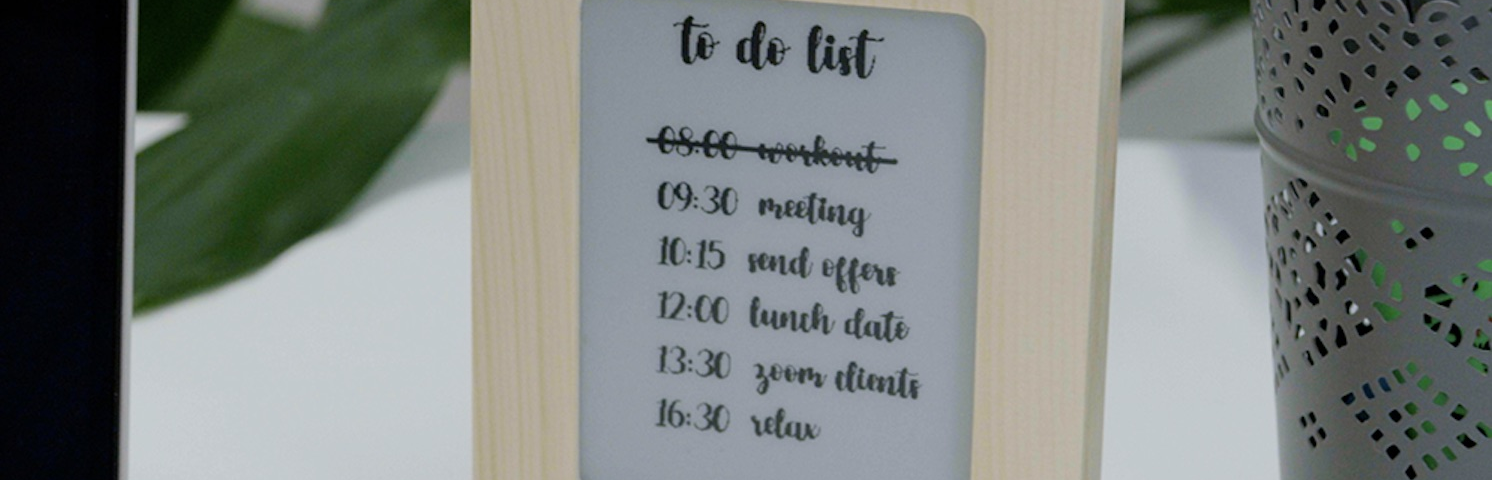 to do list
08:00 workout
09:30 meeting
10:15 send offers
12:00 lunch date
13:30 zoom clients
16:30 relax